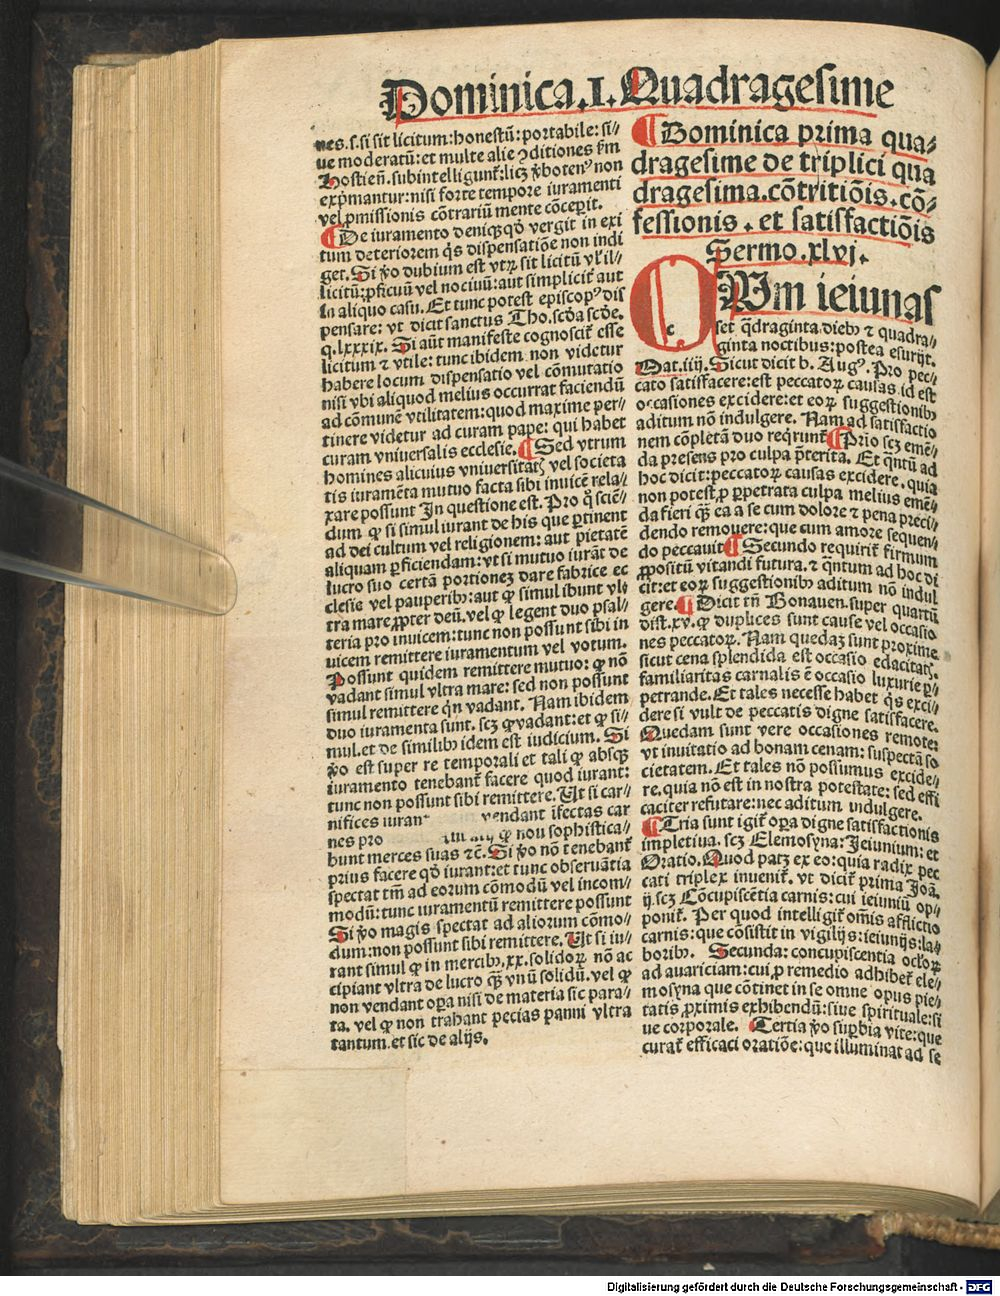 Dominica .I. Quadragesime
nes.s.si sit licitum:honestū:portabile:si//
ue moderatū:et multe alie ↄditiones ẜm
Hostieñ.subintelligunt̃:licꝫ ꝟbotenꝰ non
exp̄mantur:nisi forte tempore iuramenti
vel ꝓmissionis cōtrariū mente cōceperit.
¶De iuramento deniqꝫ qḋ vergit in exi
tum deteriorem q̄s dispensatiōe non indi
get. Si ꝟo dubium est vtꝝ sit licitū vl̓ il//
licitū:ꝓficuū vel nociuū:aut simplicit̓ aut
in aliquo casu. Et tunc potest episcopꝰ dis
pensare: vt dicit sanctus Tho.scḋa scḋe.
q.lxxxix. Si aūt manifeste cognoscit̃ esse
licitum ⁊ vtile: tunc ibidem non videtur
habere locum dispensatio vel cōmutatio
nisi vbi aliquod melius occurrat faciendū
ad cōmunē vtilitatem:quod maxime per//
tinere videtur ad curam pape: qui habet
curam vniuersalis ecclesie. ¶Sed vtrum
homines alicuius vniuersitatꝭ vel societa
tis iuramēta mutuo facta sibi inuicē rela//
xare possunt In questione est. Pro q̄ sciē//
dum ꝙ si simul iurant de his que ꝑtinent
ad dei cultum vel religionem: aut pietatē
aliquam ꝑficiendam: vt si mutuo iurāt de
lucro suo certā portionez dare fabrice ec
clesie vel pauperibꝫ:aut ꝙ simul ibunt vl̓
tra mare ꝓpter deū.vel ꝙ legent duo psal//
teria pro inuicem:tunc non possunt sibi in
uicem remittere iuramentum vel votum.
Possunt quidem remittere mutuo: ꝙ nō
vadant simul vltra mare: sed non possunt
simul remittere qn̄ vadant. Nam ibidem
duo iuramenta sunt. scꝫ ꝙ vadant:et ꝙ si//
mul.et de similibꝫ idem est iudicium. Si
ꝟo est super re temporali et tali ꝙ absqꝫ
iuramento tenebant̃ facere quod iurant:
tunc non possunt sibi remittere. Ut si car//
nifices iurant vendant īfectas car
nes pro ꝙ non sophistica//
bunt merces suas ⁊c̄. Si ꝟo nō tenebant̃
prius facere qḋ iurant:et tunc obseruātia
spectat tm̄ ad eorum cōmodū vel incom//
modū: tunc iuramentū remittere possunt
Si ꝟo magis spectat ad aliorum cōmo//
dum:non possunt sibi remittere. Ut si iu//
rant simul ꝙ in mercibꝫ.xx.solidoꝝ nō ac
cipiant vltra de lucro qꝫ̄ vnū solidū.vel ꝙ
non vendant oꝑa nisi de materia sic para//
ta. vel ꝙ non trahant pecias panni vltra
tantum.et sic de alijs.
¶Dominica prima qua//
dragesime de triplici qua
dragesima.cōtritiōis.cō//
fessionis.et satisfactiōis
Sermo.xlvj.
Um ieiunas
c
set q̄draginta diebꝫ ⁊ quadra//
ginta noctibus:postea esurijt.
Mat.iiij. Sicut dicit b. Augꝰ. Pro pec//
cato satisfacere:est peccatoꝝ causas id est
occasiones excidere:et eoꝝ suggestionibꝫ
aditum nō indulgere. Nam ad satisfactio
nem cōpletā duo reqͥrunt̃ ¶Prīo scꝫ emē//
da presens pro culpa p̄terita. Et q̄ntū ad
hoc dicit:peccatoꝝ causas excidere. quia
non potest,ꝓ ꝑpetrata culpa melius emē//
da fieri qꝫ̄ ea a se cum dolore ⁊ pena preci//
dendo remouere:que cum amore sequen//
do peccauit ¶Secundo requirit̃ firmum
ꝓpositū vitandi futura.⁊ q̄ntum ad hoc di
cit:et eoꝝ suggestionibꝫ aditum nō indul
gere. ¶Dicit tn̄ Bonauen.super quartū
dist.xv.ꝙ duplices sunt cause vel occasio
nes peccatoꝝ. Nam quedaz sunt proxime
sicut cena splendida est occasio edacitatꝭ.
familiaritas carnalis ē occasio luxurie ꝑ//
petrande. Et tales necesse habet q̄s exci//
dere si vult de peccatis digne satisfacere.
Quedam sunt vere occasiones remote:
vt inuitatio ad bonam cenam: suspectā so
cietatem. Et tales nō possumus excide//
re.quia nō est in nostra potestate: sed effi
caciter refutare:nec aditum indulgere.
¶Tria sunt igit̃ oꝑa digne satisfactionis
impletiua. scꝫ Elemosyna:Ieiunium: et
Oratio. Quod patꝫ ex eo:quia radix pec
cati triplex inuenit̃. vt dicit̃ prima Joā.
ij.scꝫ Cōcupiscētia carnis: cui ieiuniū op//
ponit̃. Per quod intelligit̃ om̄is afflictio
carnis: que cōsistit in vigilijs:ieiunijs:la//
boribꝫ. Secunda: concupiscentia ocl̓oꝝ
ad auariciam:cui,ꝓ remedio adhibet̃ ele//
mosyna que cōtinet in se omne opus pie//
tatis ꝓximis exhibendū:siue spirituale:si
ue corporale. Tertia ꝟo suꝑbia vite:que
curat̃ efficaci oratiōe:que illuminat ad se
Digitalisierung gefördert durch die Deutsche Forschungsgemeinschaft - DFG